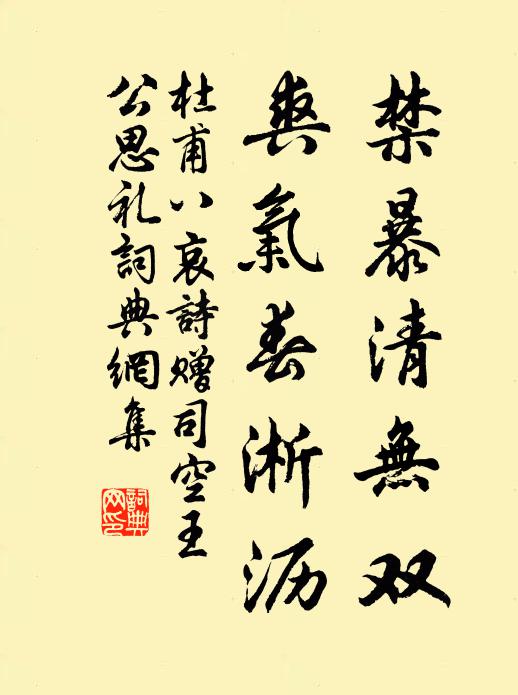 禁暴清無双
爽氣春淅沥
杜甫八哀詩贈司空王
公思礼詞典網集
詞典网印